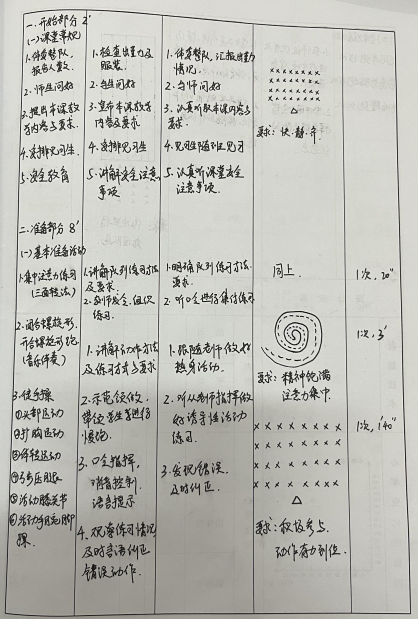 一、开始部分 2'
(一)课堂常规
1.体育整队,
报告人数.
2.师生问好
3.提出本课教
学内容与要求.
4.安排见习生.
5.安全教育
1.检查出勤及
服装.
2.与生问好
3.宣布本课教学
内容及要求.
4.安排见习生
5.讲解安全注意
事项
1.体委整队,汇报出勤
情况.
2.与师问好
3.认真听取本课内容与
要求.
4.见习生随队见习
5.认真听课堂安全
注意事项.
× × × × × × × ×
× × × × × × × ×
× × × × × × × ×
× × × × × × × ×
△
要求:快、静、齐.
二、准备部分 8'
(一)基本准备活动
1.集中注意力练习
(三面转法)
2.闭合螺旋形,
开合螺旋形跑
(音乐伴奏)
3.徒手操
①头部运动
②扩胸运动
③体转运动
④弓步压腿
⑤活动膝关节
⑥活动手腕脚
踝.
1.讲解队列练习方法
及要求.
2.教师发令,组织
练习.
1.讲解动作方法
及练习方式与要求
2.示范领做,
带领学生进行
慢跑.
3.口令指挥,
哨音控制,
语言提示
4.观察练习情况
及时言语纠正
错误动作.
1.明确队列练习方法,
要求.
2.听口令进行集体练习
1.跟随老师做好
热身活动.
2.听从老师指挥做
好诱导性活动
练习.
3.发现错误
及时纠正.
同上.
要求:精神饱满
注意力集中.
× × × × × × ×
× × × × × × ×
× × × × × × ×
× × × × × × ×
△
要求:积极参与.
动作有力到位.
1次, 20"
1次, 3'
1次, 1'40"